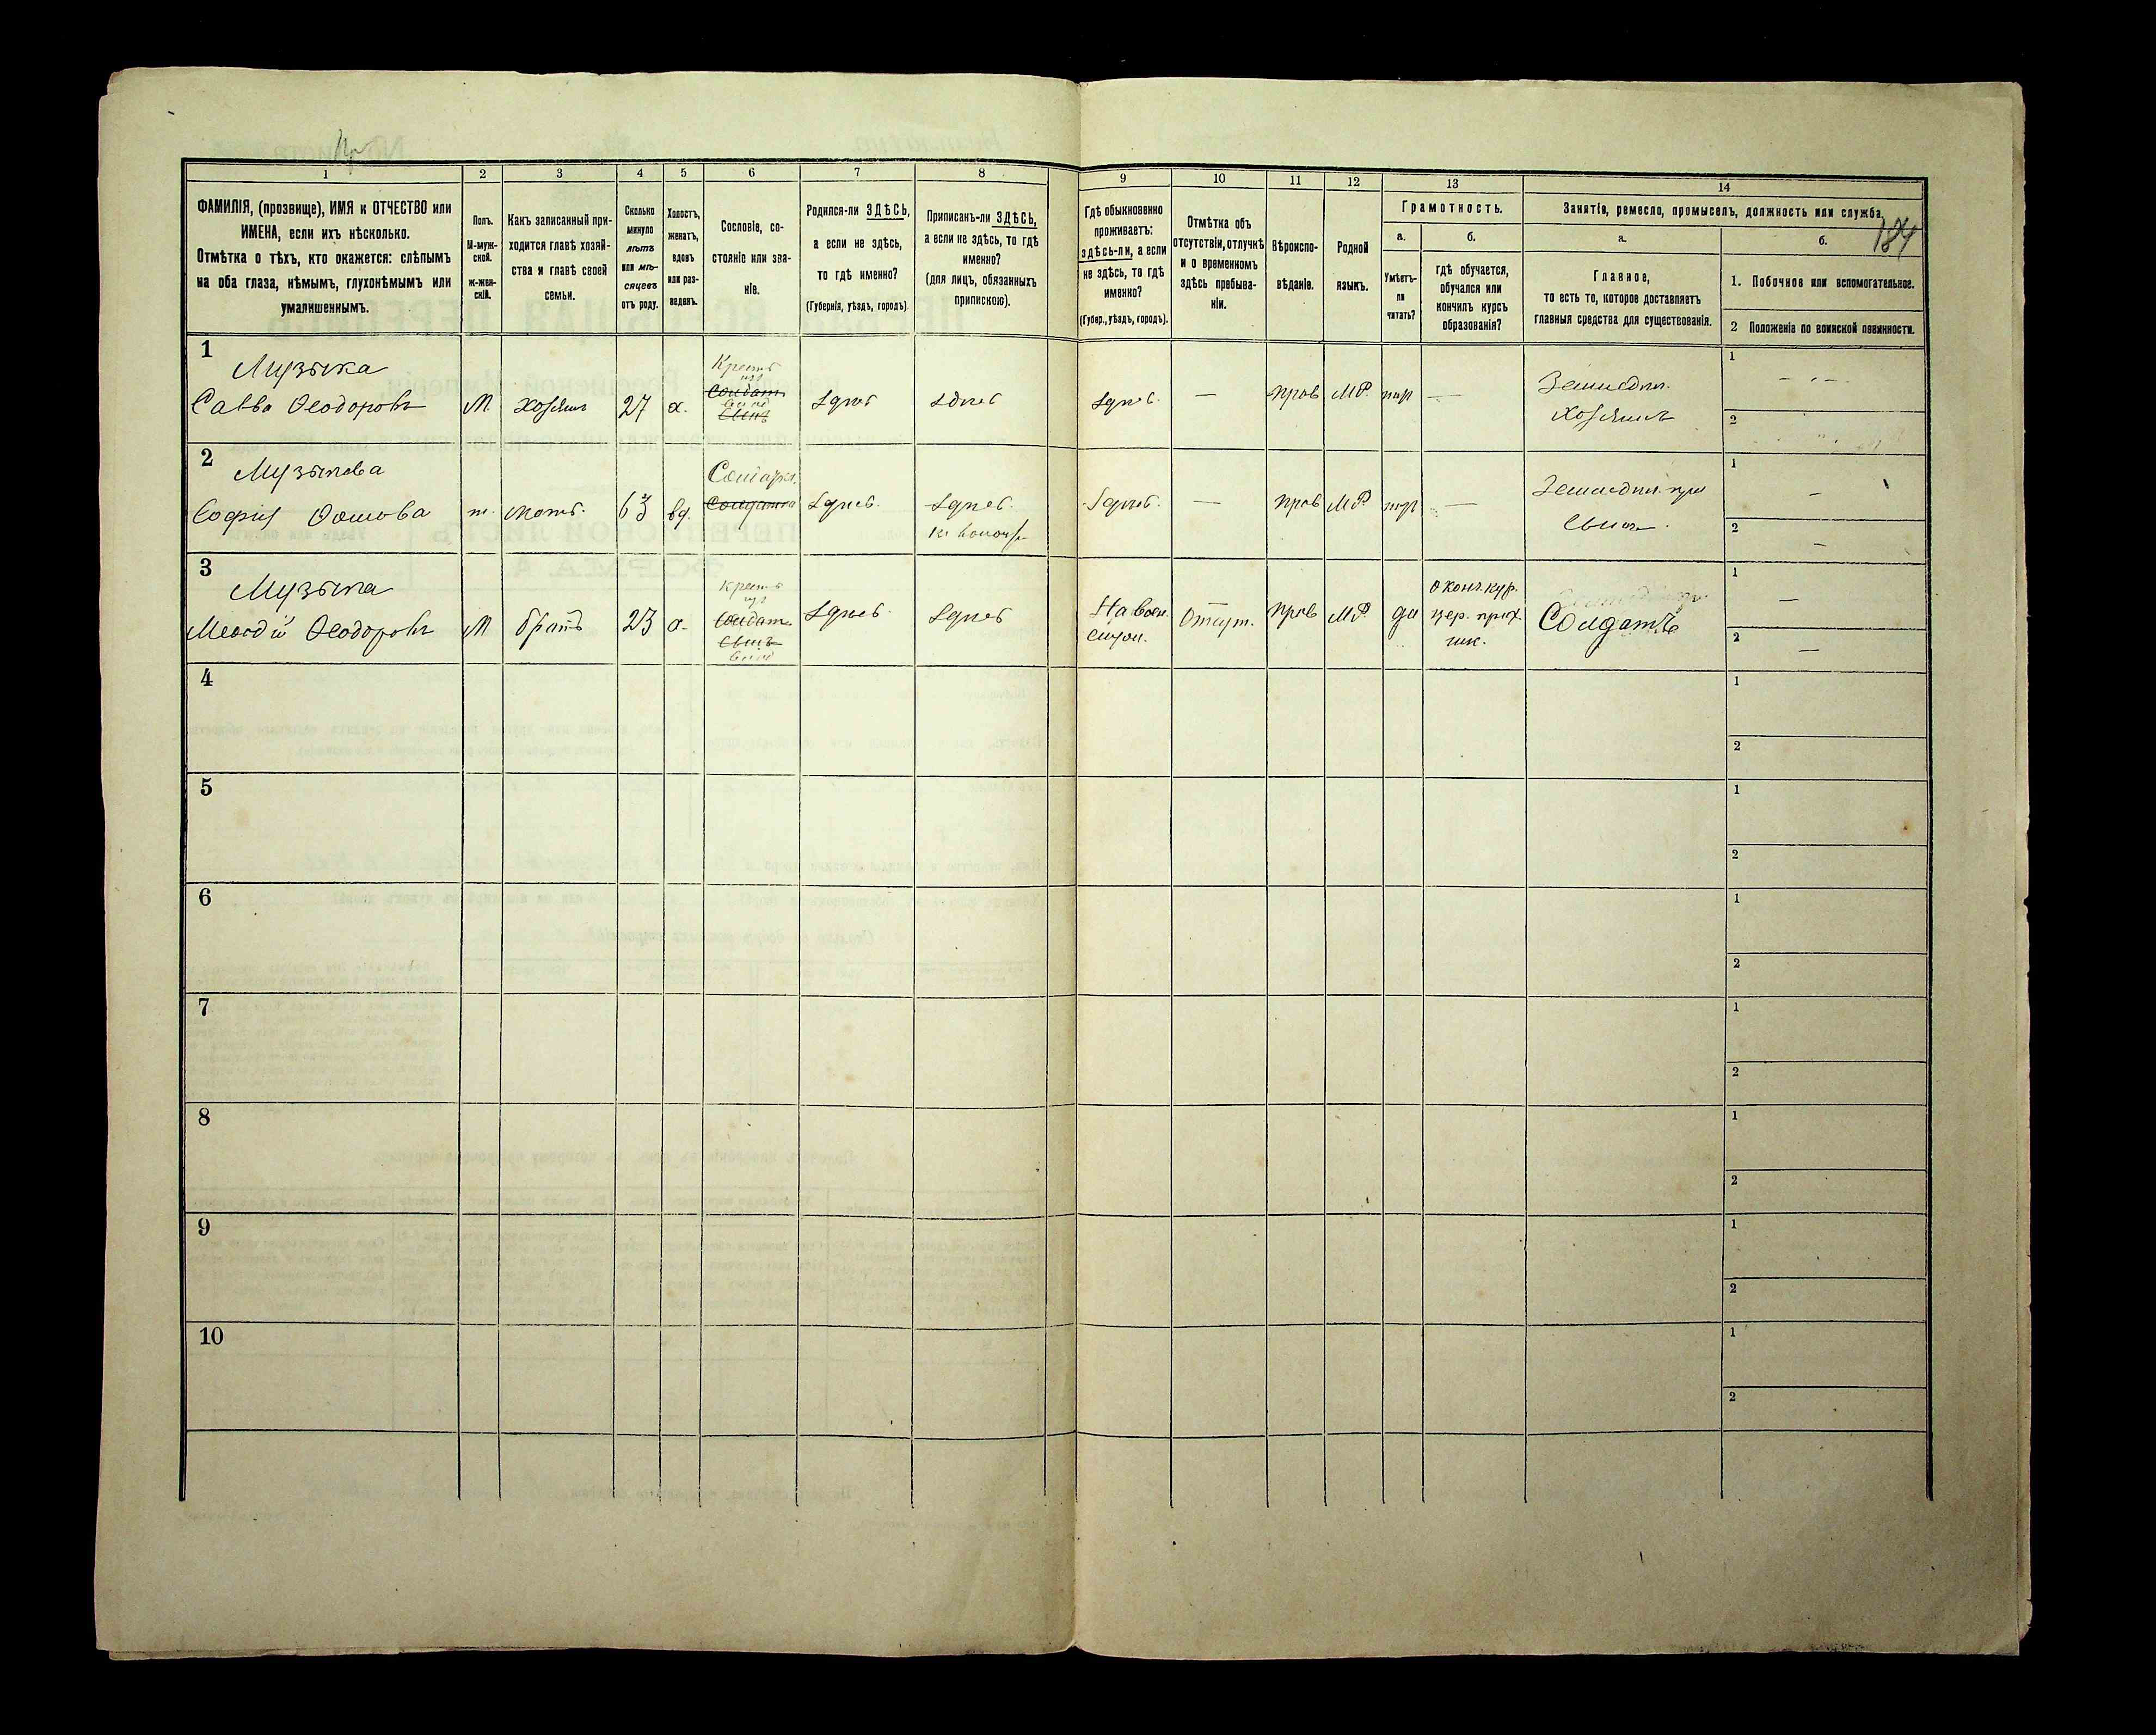 184
1
2
3
4
5
6
7
8
9
10
11
12
13
14
ФАМИЛІЯ, (прозвище), ИМЯ и ОТЧЕСТВО или
ИМЕНА, если ихъ нѣсколько.
Отмѣтка о тѣхъ, кто окажется: слѣпымъ
на оба глаза, нѣмымъ, глухонѣмымъ или
умалишеннымъ.
Полъ.
М-муж-
ской.
ж-жен-
скій.
Какъ записанный при-
ходится главѣ хозяй-
ства и главѣ своей
семьи.
Сколько
минуло
лѣтъ
или мѣ-
сяцевъ
отъ роду.
Холостъ,
женатъ,
вдовъ
или раз-
веденъ.
Сословіе, со-
стояніе или зва-
ніе.
Родился-ли ЗДѢСЬ,
а если не здѣсь,
то гдѣ именно?
(Губернія, уѣздъ, городъ)
Приписанъ-ли ЗДѢСЬ,
а если не здѣсь, то гдѣ
именно?
(для лицъ, обязанныхъ
припискою).
Гдѣ обыкновенно
проживаетъ:
здѣсь-ли, а если
не здѣсь, то гдѣ
именно?
(Губер., уѣздъ, городъ).
Отмѣтка объ
отсутствіи, отлучкѣ
и о временномъ
здѣсь пребыва-
ніи.
Вѣроиспо-
вѣданіе.
Родной
языкъ.
Грамотность.
а.
Умѣетъ-
ли
читать?
б.
гдѣ обучается,
обучался или
кончилъ курсъ
образованія?
Занятіе, ремесло, промыселъ, должность или служба.
а.
Главное,
то есть то, которое доставляетъ
главныя средства для существованія.
б.
1. Побочное или вспомогательное.
2 Положеніе по воинской повинности.
1
Музыка
Савва Ѳеодоровъ
М
хозяинъ
27
х.
Крестъ
изъ
Солдат.
Сынъ
здѣсь
здѣсь
здѣсь.
—
прав
МР.
—
Земледѣл.
хозяинъ
1
2
2
Музыкова
Софія
ж.
мать.
63
вд.
Солдатка
здѣсь.
здѣсь.
здѣсь.
—
прав
МР
—
Земледѣл. при
сынѣ.
1
—
2
—
3
Музыка
Меѳодій Ѳеодоровъ
М
братъ
23
х.
крестъ
изъ
Солдат.
Сынъ
здѣсь.
здѣсь
На воен.
служ.
Отсут.
прав
МР
да
оконч. кур.
цер. прих.
шк.
Солдатъ
1
—
2
—
4
1
2
5
1
2
6
1
2
7
1
2
8
1
2
9
1
2
10
1
2